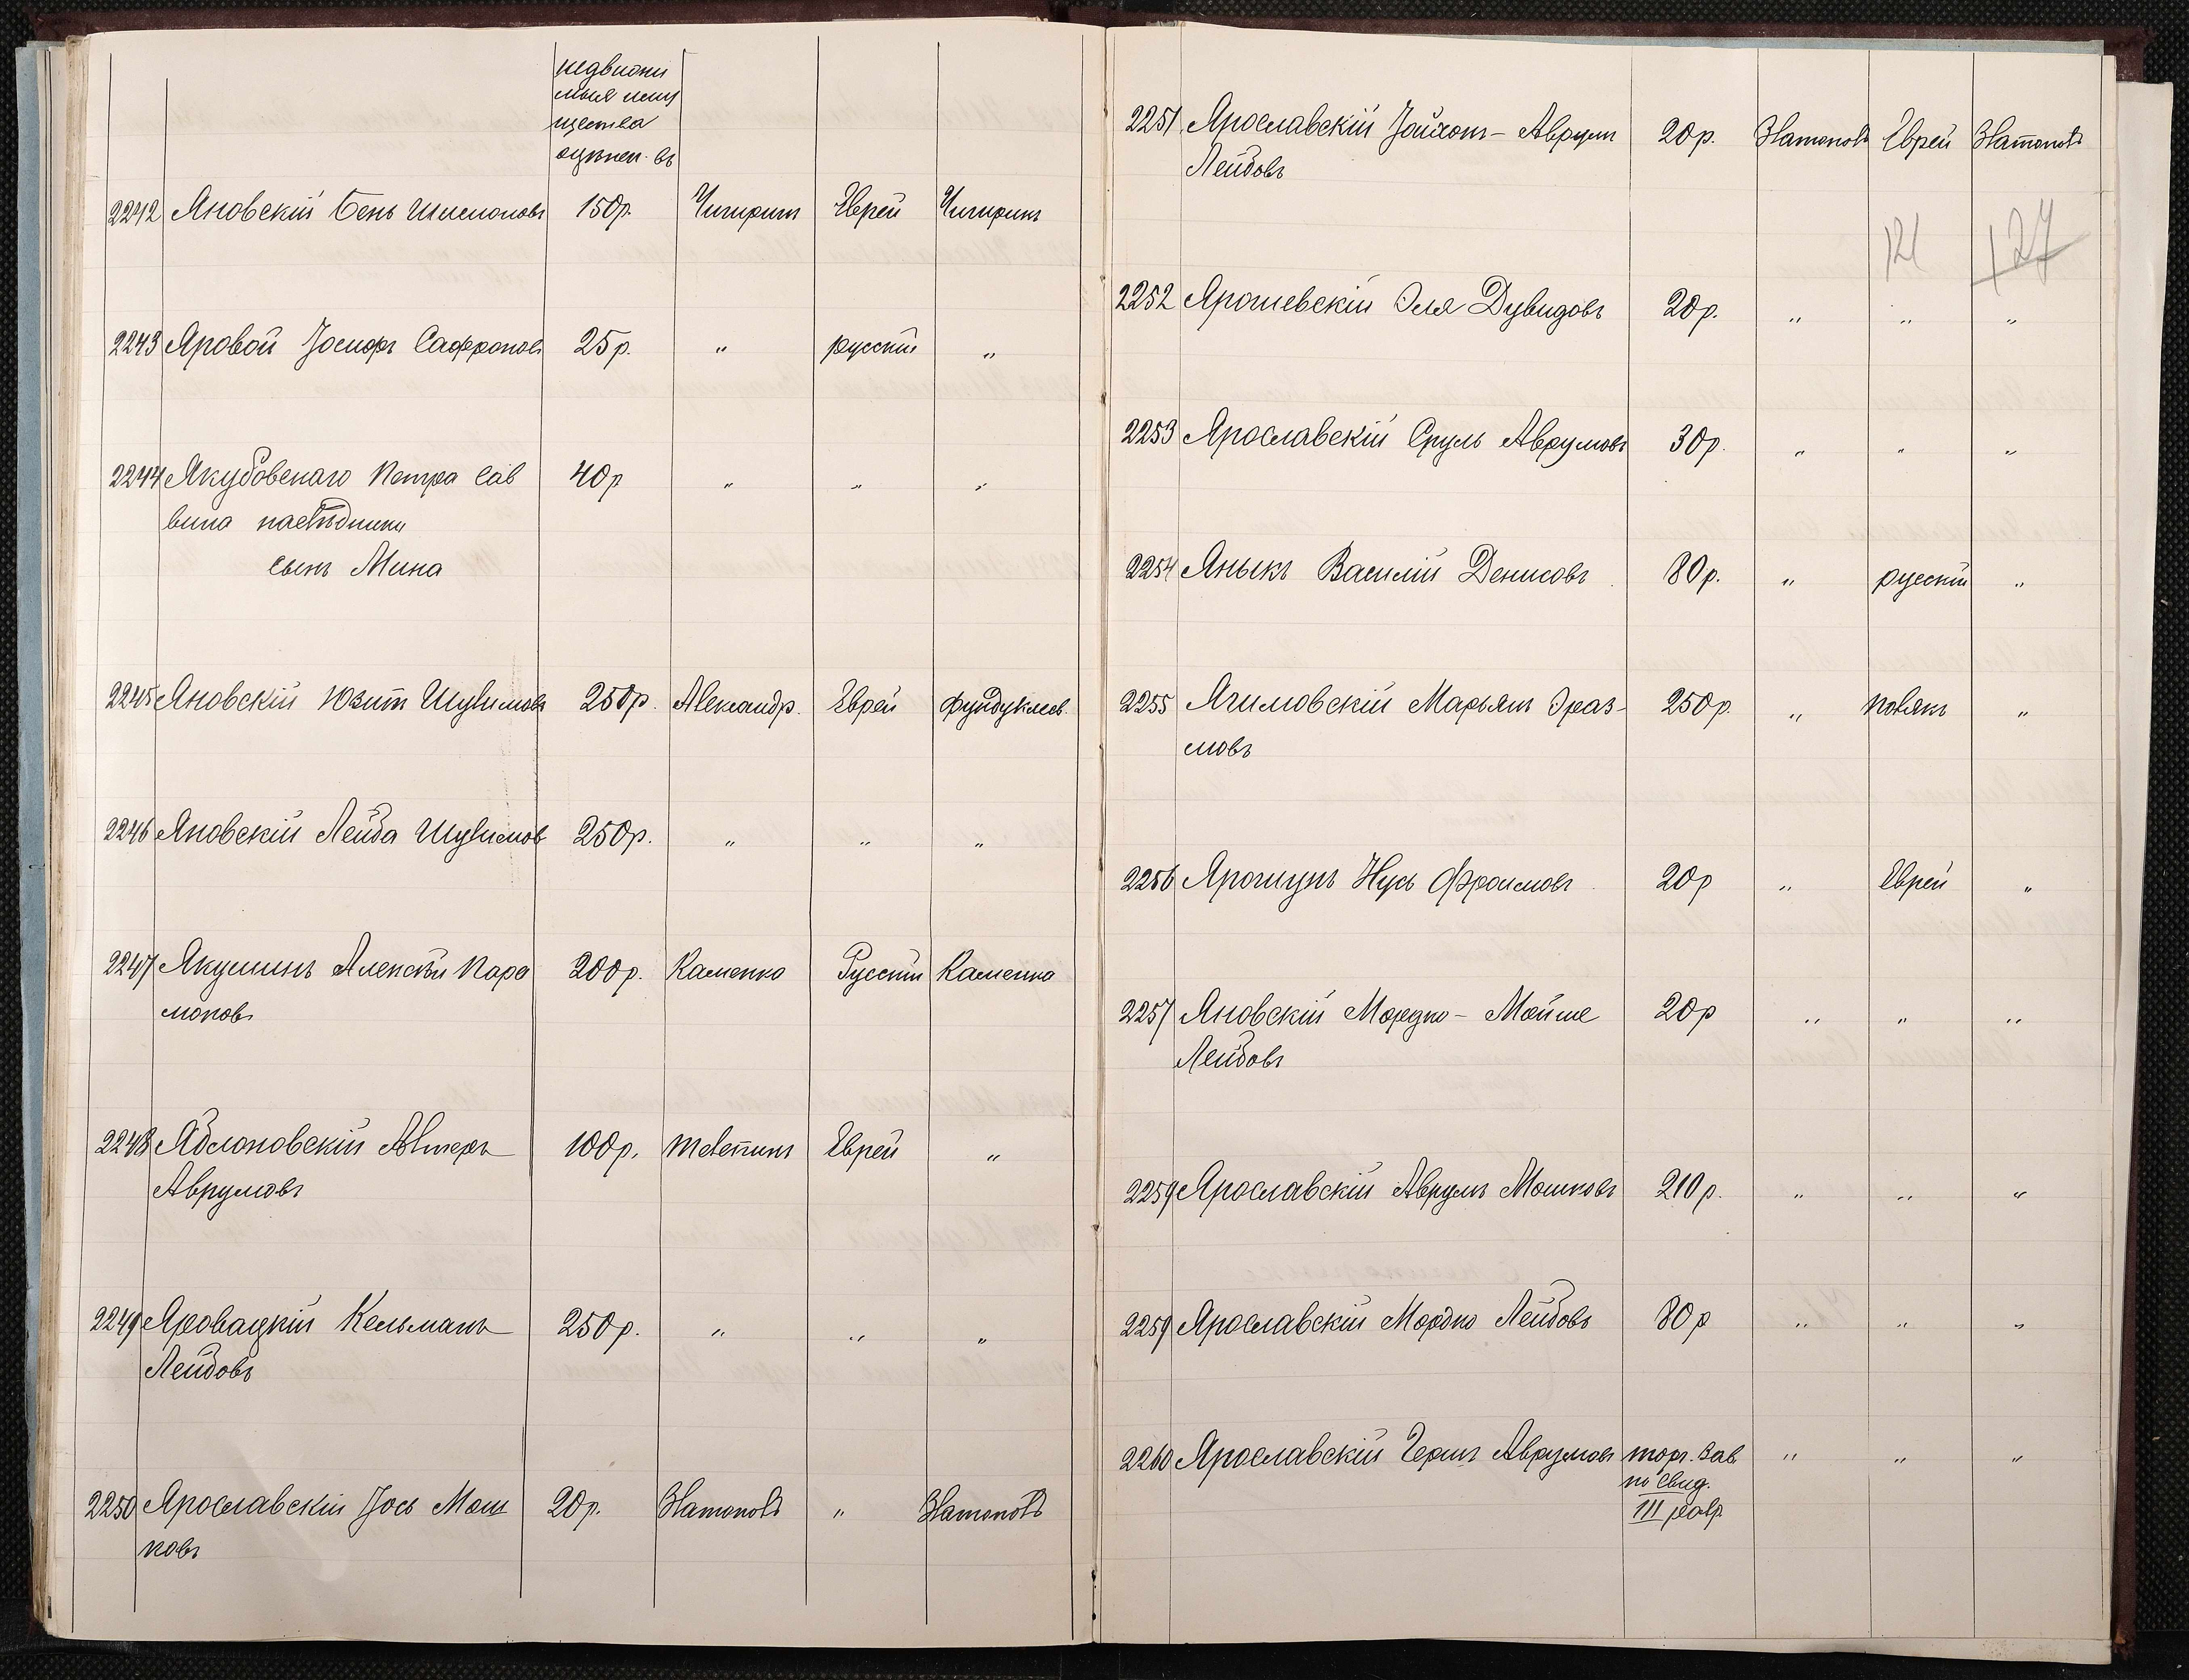 недвижи
мыя иму
щества
оценен. въ
2242 Яновскій Бень Шимоновъ 150р. Чигиринъ Еврей Чигиринъ
2243 Яровой Іосифъ Сафроновъ 25р. " русскій "
2244 Якубовскаго Петра Сав 40р " " "
вина наслѣдники
сынъ Мина
2245 Яновскій Юзип Шулимовъ 250р. Александр. Еврей Фундуклеев.
2246 Яновскій Лейба Шулимов 250р. " " "
2247 Якушинъ Алексѣй Пара 200р. Каменка Русскій Каменка
моновъ
2248 Яблоновскій Алтеръ 100р. Телепинъ Еврей "
Аврумовъ
2249 Яровацкій Кельманъ 250р. " " "
Лейбовъ
2250 Ярославскій Іось Мош 20р. Златополь " Златополь
ковъ
2251 Ярославскій Іойхом - Аврум 20р. Златополь Еврей Златополь
Лейбовъ
121 127
2252 Ярошевскій Эля Дувидовъ 20р. " " "
2253 Ярославскій Сруль Аврумовъ 30р. " " "
2254 Яныкъ Василій Денисовъ 80р. " русскій "
2255 Ячимовскій Марьянъ Эраз- 250р. " полякъ "
мовъ
2256 Ярошунъ Нусь Фроимовъ 20р " Еврей "
2257 Яновскій Мордко - Мойше 20р " " "
Лейбовъ
2259 Ярославскій Аврумъ Мошковъ 210р. " " "
2259 Ярославскій Мордко Лейбовъ 80р " " "
2260 Ярославскій Герш Аврумовъ торг. зав " " "
по свид.
III разр.